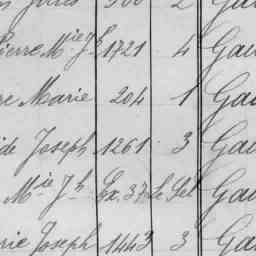 Pierre Mie Jh 1721 4 Gau
re Marie 204 1 Gau
ide Joseph 1261 3 Gau
Mie Jh Ex. 37 Le Sel Gau
rie Joseph 1443 3 Gau